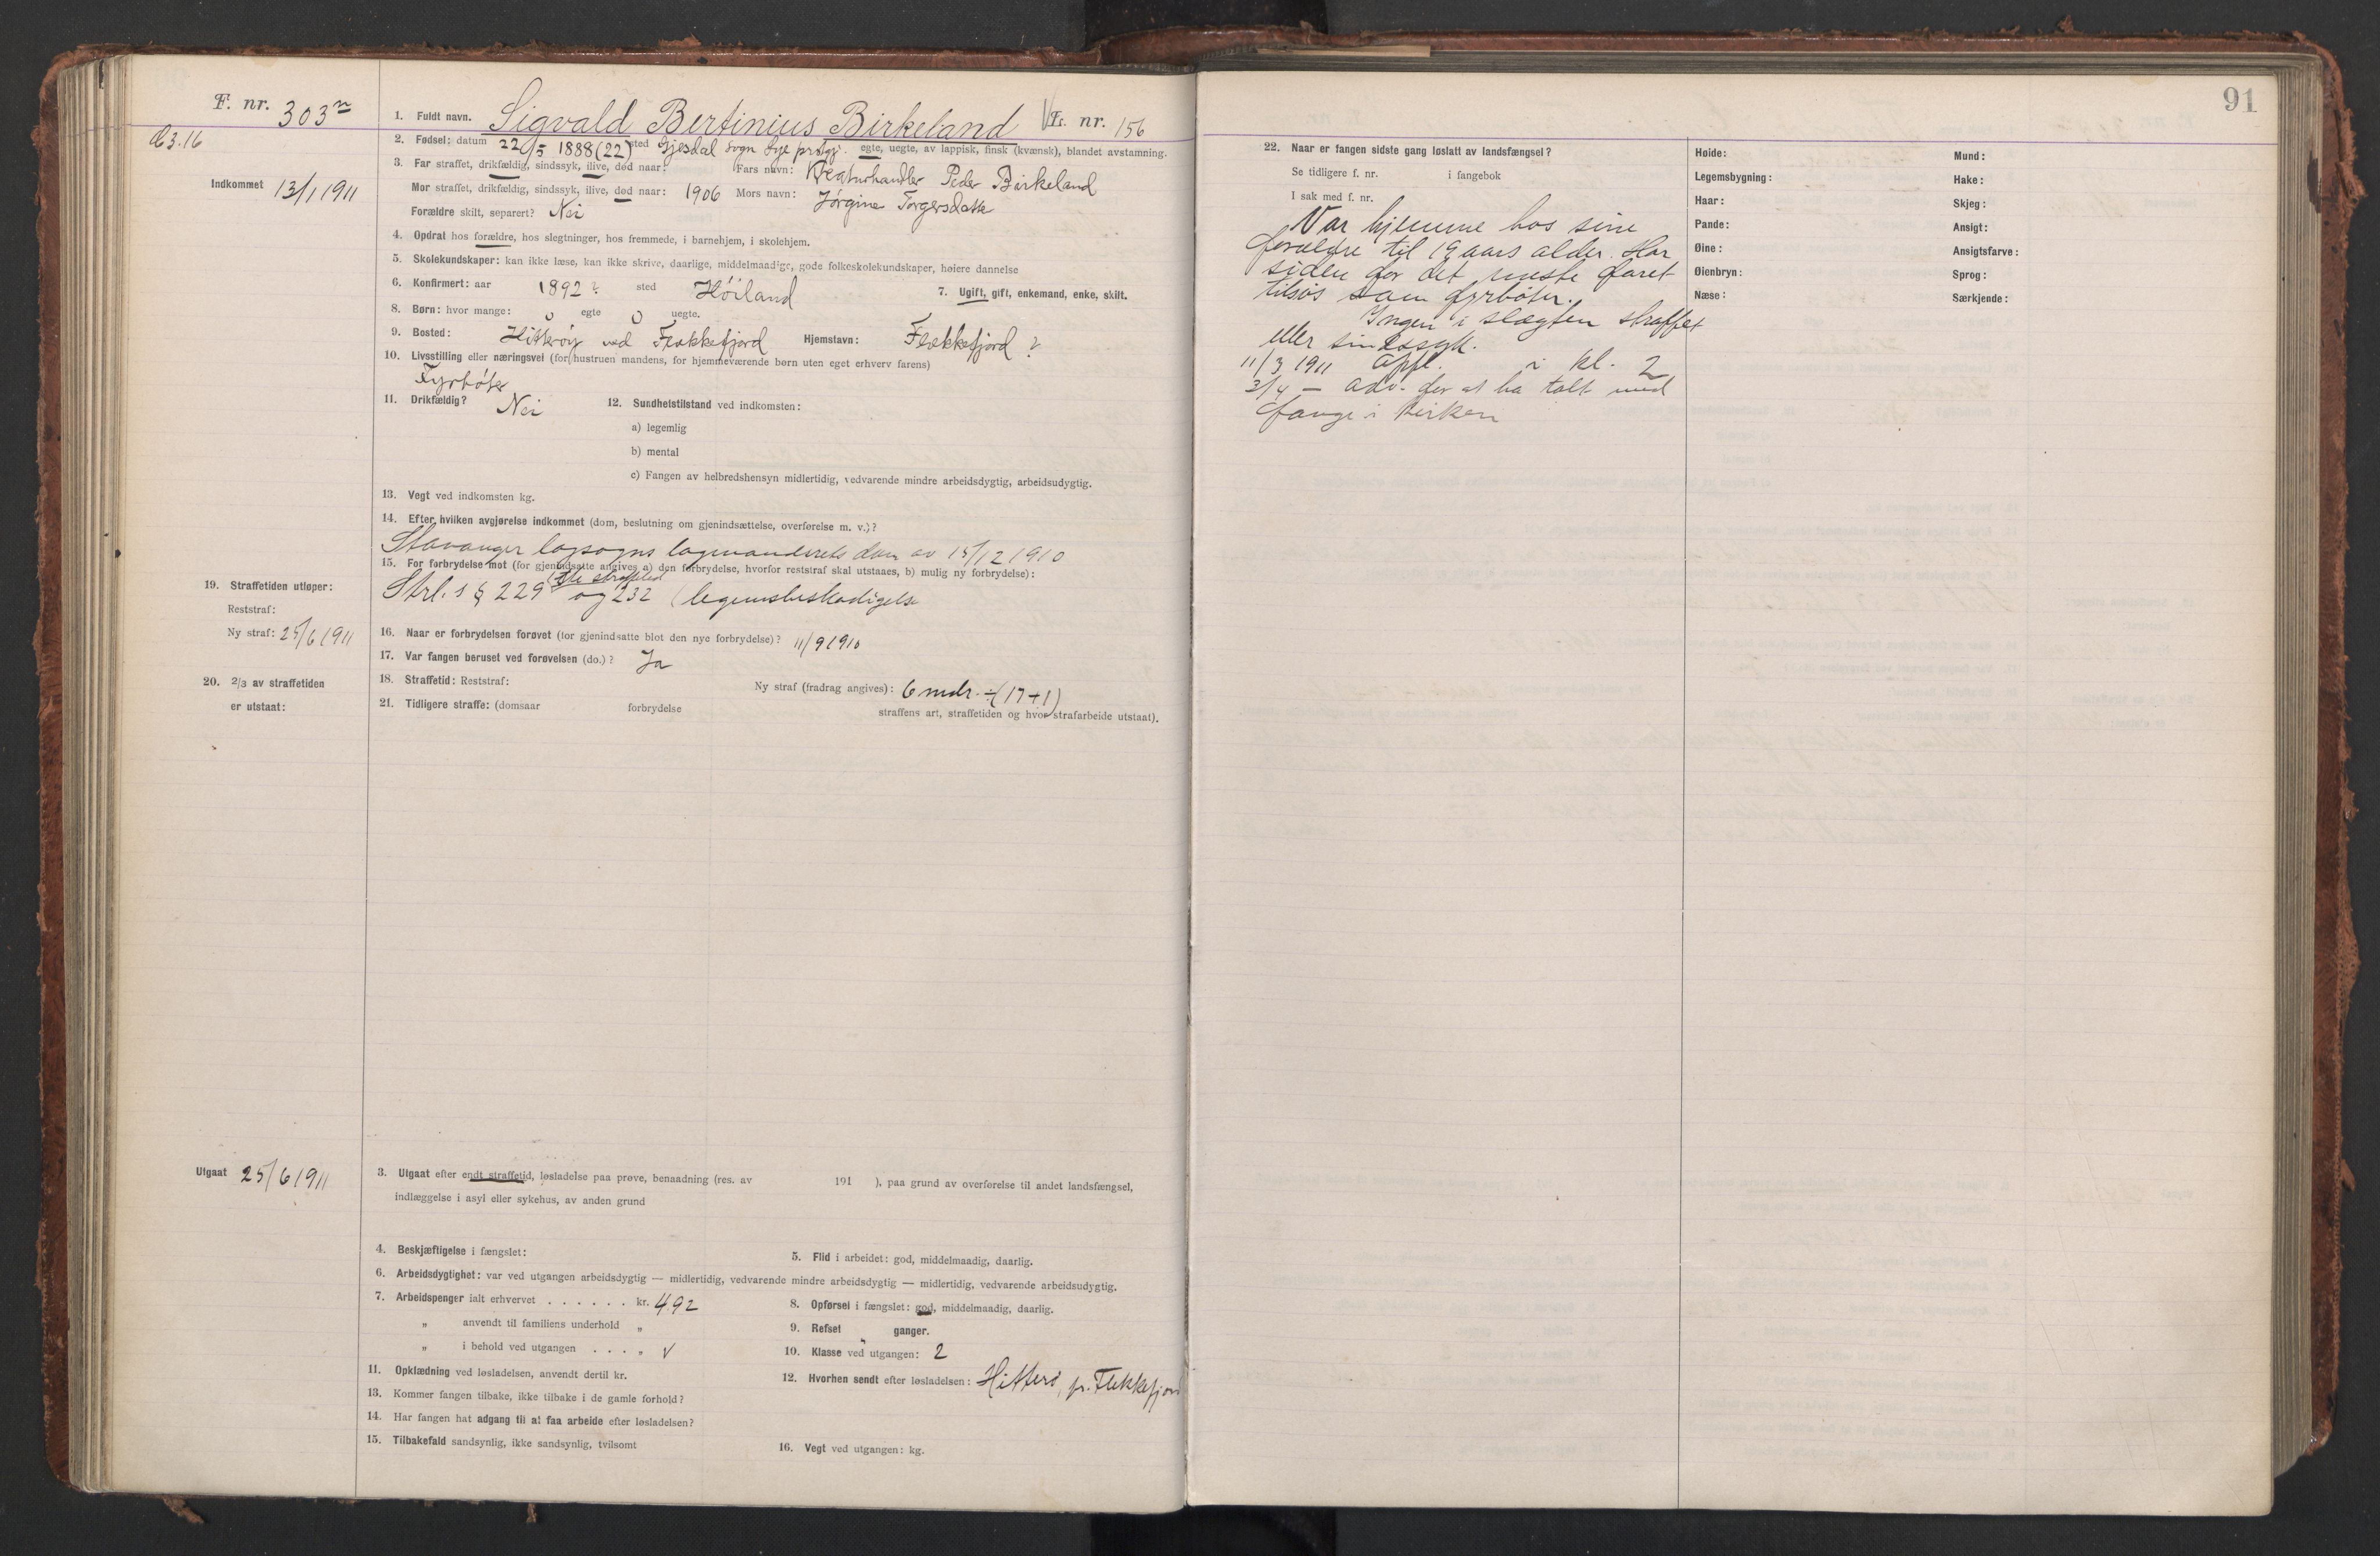 F. nr. 303n
d 3.16
Indkommet 13/1 1911
1. Fuldt navn. Sigvald Bertinius Birkeland L. nr. 156
2. Fødsel: datum 22/5 1888 (22) sted Gjesdal sogn Lye prstgj. egte, uegte, av lappisk, finsk (kvænsk), blandet avstamning.
3. Far straffet, drikfældig, sindssyk, ilive, død naar: Fars navn: Kreaturhandler Peder Birkeland
Mor straffet, drikfældig, sindssyk, ilive, død naar: 1906 Mors navn: Jørgine Torgersdatter
Forældre skilt, separert? Nei
4. Opdrat hos forældre, hos slegtninger, hos fremmede, i barnehjem, i skolehjem.
5. Skolekundskaper: kan ikke læse, kan ikke skrive, daarlige, middelmaadige, gode folkeskolekundskaper, høiere dannelse
6. Konfirmert: aar 1892? sted Høiland 7. Ugift, gift, enkemand, enke, skilt.
8. Børn: hvor mange: 0 egte 0 uegte.
9. Bosted: Hitterøy ved Flekkefjord Hjemstavn: Flekkefjord?
10. Livsstilling eller næringsvei (for hustruen mandens, for hjemmeværende børn uten eget erhverv farens)
Fyrbøter
11. Drikfældig? Nei 12. Sundhetstilstand ved indkomsten:
a) legemlig
b) mental
c) Fangen av helbredshensyn midlertidig, vedvarende mindre arbeidsdygtig, arbeidsudygtig.
13. Vegt ved indkomsten kg.
14. Efter hvilken avgjørelse indkommet (dom, beslutning om gjenindsættelse, overførelse m. v.)?
Stavanger lagsogns lagmandsrets dom av 15/12 1910
15. For forbrydelse mot (for gjenindsatte angives a) den forbrydelse, hvorfor reststraf skal utstaaes, b) mulig ny forbrydelse):
Strl.s § 229 (1ste straffeled) og 232 (legemsbeskadigelse
19. Straffetiden utløper:
Reststraf:
Ny straf: 25/6 1911
16. Naar er forbrydelsen forøvet (for gjenindsatte blot den nye forbrydelse)? 11/9 1910
17. Var fangen beruset ved forøvelsen (do.)? Ja
20. 2/3 av straffetiden
er utstaat:
18. Straffetid: Reststraf: Ny straf (fradrag angives): 6 mdr. ÷ (17+1)
21. Tidligere straffe: (domsaar forbrydelse straffens art, straffetiden og hvor strafarbeide utstaat).
Utgaat 25/6 1911
3. Utgaat efter endt straffetid, løsladelse paa prøve, benaadning (res. av 191 ), paa grund av overførelse til andet landsfængsel,
indlæggelse i asyl eller sykehus, av anden grund
4. Beskjæftigelse i fængslet: 5. Flid i arbeidet: god, middelmaadig, daarlig.
6. Arbeidsdygtighet: var ved utgangen arbeidsdygtig — midlertidig, vedvarende mindre arbeidsdygtig — midlertidig, vedvarende arbeidsudygtig.
7. Arbeidspenger ialt erhvervet . . . . . . kr. 4.92 8. Opførsel i fængslet: god, middelmaadig, daarlig.
„ anvendt til familiens underhold „ 9. Refset „ ganger.
„ i behold ved utgangen . . . „ v 10. Klasse ved utgangen: 2
11. Opklædning ved løsladelsen, anvendt dertil kr. 12. Hvorhen sendt efter løsladelsen: Hitterø, pr. Flekkefjord
13. Kommer fangen tilbake, ikke tilbake i de gamle forhold?
14. Har fangen hat adgang til at faa arbeide efter løsladelsen?
15. Tilbakefald sandsynlig, ikke sandsynlig, tvilsomt 16. Vegt ved utgangen: kg.
91
22. Naar er fangen sidste gang løslatt av landsfængsel?
Se tidligere f. nr. i fangebok
I sak med f. nr.
Var hjemme hos sine
forældre til 19 aars alder. Har
siden for det meste faret
tilsjøs som fyrbøter.
Ingen i slægten straffet
eller sindssyk.
11/3 1911 Oppf. i kl. 2
3/4 — adv. for at ha talt med
fange i kirken
Høide:
Legemsbygning:
Haar:
Pande:
Øine:
Øienbryn:
Næse:
Mund:
Hake:
Skjeg:
Ansigt:
Ansigtsfarve:
Sprog:
Særkjende: